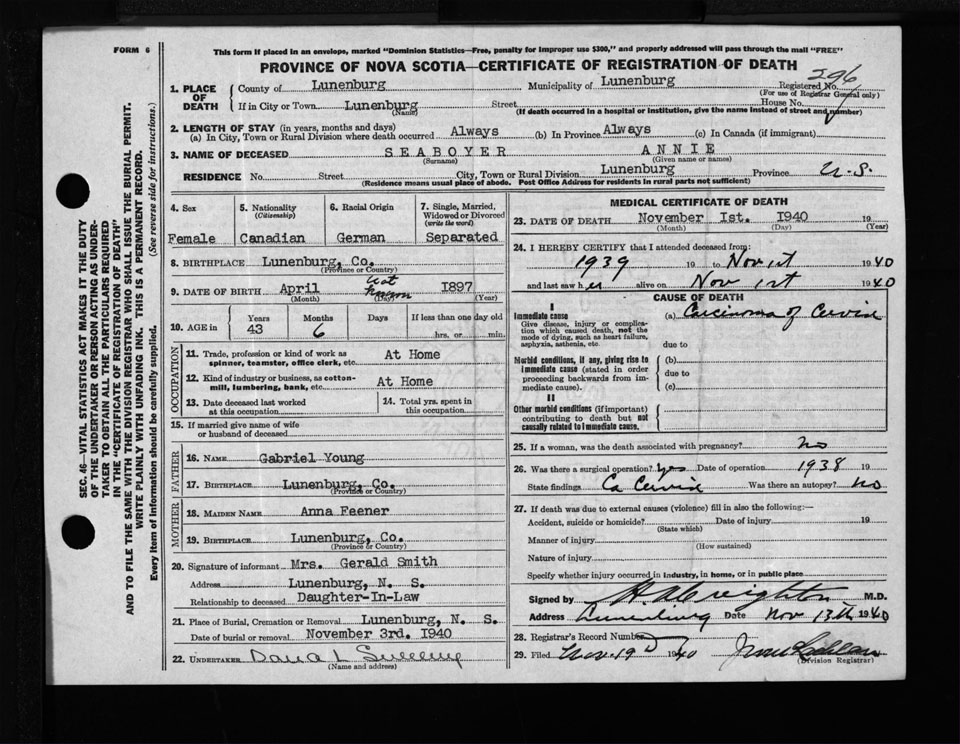 FORM 6
This form if placed in an envelope, marked "Dominion Statistics—Free, penalty for improper use $300," and properly addressed will pass through the mail "FREE"
PROVINCE OF NOVA SCOTIA—CERTIFICATE OF REGISTRATION OF DEATH
296
1. PLACE OF DEATH
County of Lunenburg Municipality of Lunenburg Registered No.
(For use of Registrar General only)
If in City or Town Lunenburg Street House No.
(Name) (If death occurred in a hospital or institution, give the name instead of street and number)
2. LENGTH OF STAY (in years, months and days)
(a) In City, Town or Rural Division where death occurred Always (b) In Province Always (c) In Canada (if immigrant)
3. NAME OF DECEASED SEABOYER ANNIE
(Surname) (Given name or names)
RESIDENCE No. Street City, Town or Rural Division Lunenburg Province N.S.
(Residence means usual place of abode. Post Office Address for residents in rural parts not sufficient)
4. Sex
Female
5. Nationality
(Citizenship)
Canadian
6. Racial Origin
German
7. Single, Married, Widowed or Divorced
(write the word)
Separated
8. BIRTHPLACE Lunenburg, Co.
(Province or Country)
9. DATE OF BIRTH April not known 1897
(Month) (Day) (Year)
10. AGE in
Years Months Days If less than one day old
43 6 hrs. or min.
OCCUPATION
11. Trade, profession or kind of work as spinner, teamster, office clerk, etc. At Home
12. Kind of industry or business, as cotton-mill, lumbering, bank, etc. At Home
13. Date deceased last worked at this occupation
14. Total yrs. spent in this occupation
15. If married give name of wife or husband of deceased
FATHER
16. NAME Gabriel Young
17. BIRTHPLACE Lunenburg, Co.
(Province or Country)
MOTHER
18. MAIDEN NAME Anna Feener
19. BIRTHPLACE Lunenburg, Co.
(Province or Country)
20. Signature of informant Mrs. Gerald Smith
Address Lunenburg, N. S.
Relationship to deceased Daughter-In-Law
21. Place of Burial, Cremation or Removal Lunenburg, N. S.
Date of burial or removal November 3rd. 1940
22. UNDERTAKER
(Name and address)
MEDICAL CERTIFICATE OF DEATH
23. DATE OF DEATH November Ist. I940 19
(Month) (Day) (Year)
24. I HEREBY CERTIFY that I attended deceased from:
1939 19 to Nov 1st 1940
and last saw her alive on Nov 1st 1940
CAUSE OF DEATH
I
Immediate cause
Give disease, injury or complication which caused death, not the mode of dying, such as heart failure, asphyxia, asthenia, etc.
(a) Carcinoma of Cervix
due to
Morbid conditions, if any, giving rise to immediate cause (stated in order proceeding backwards from immediate cause).
(b)
due to
(c)
II
Other morbid conditions (if important) contributing to death but not causally related to immediate cause.
25. If a woman, was the death associated with pregnancy? no
26. Was there a surgical operation? yes Date of operation 1938 19
State findings Ca Cervix Was there an autopsy? no
27. If death was due to external causes (violence) fill in also the following:—
Accident, suicide or homicide? Date of injury 19
(State which)
Manner of injury
(How sustained)
Nature of injury
Specify whether injury occurred in industry, in home, or in public place
Signed by Creighton M.D.
Address Lunenburg Date Nov 13th 1940
28. Registrar's Record Number
29. Filed Nov. 19 1940
(Division Registrar)
SEC. 46—VITAL STATISTICS ACT MAKES IT THE DUTY
OF THE UNDERTAKER OR PERSON ACTING AS UNDER-
TAKER TO OBTAIN ALL THE PARTICULARS REQUIRED
IN THE "CERTIFICATE OF REGISTRATION OF DEATH"
AND TO FILE THE SAME WITH THE DIVISION REGISTRAR WHO SHALL ISSUE THE BURIAL PERMIT.
WRITE PLAINLY WITH UNFADING INK. THIS IS A PERMANENT RECORD.
Every item of information should be carefully supplied. (See reverse side for instructions.)